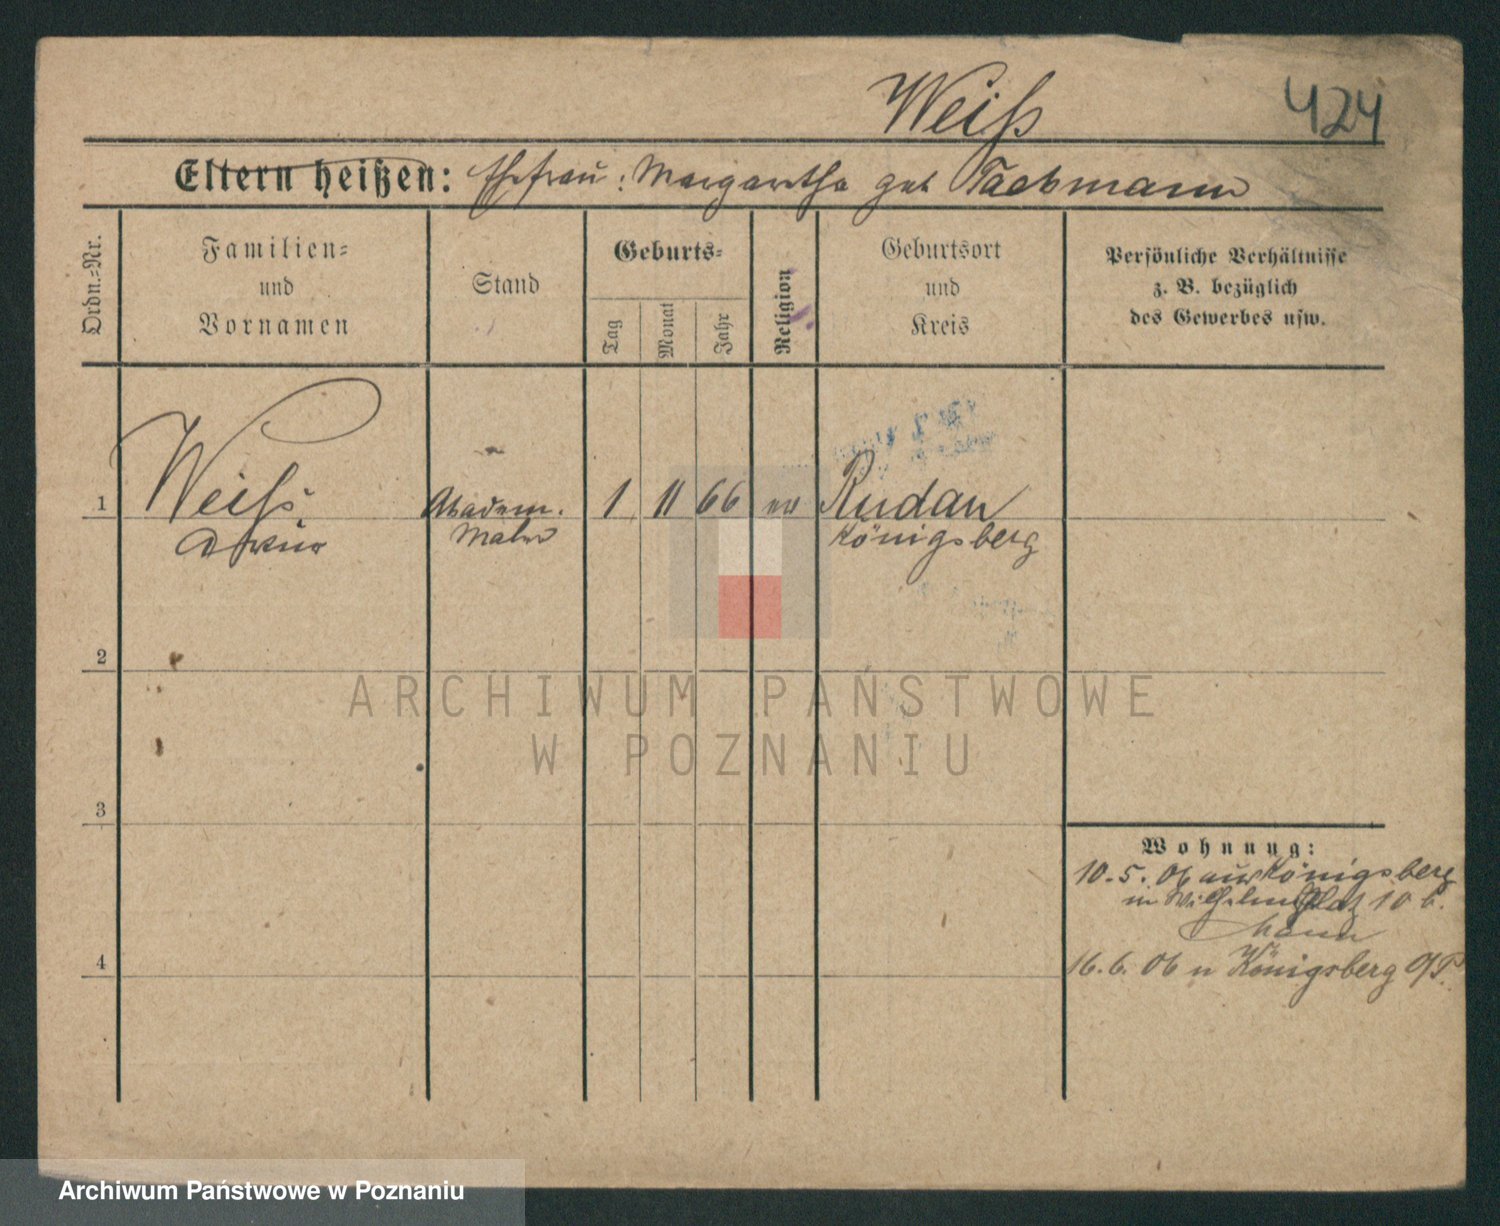 Weiß
424
Eltern heißen: Ehefrau: Margarethe geb
Ordn.-Nr.
Familien-
und
Vornamen
Stand
Geburts-
Tag
Monat
Jahr
Religion
Geburtsort
und
Kreis
Persönliche Verhältnisse
z. B. bezüglich
des Gewerbes usw.
1
Weiß
Akadem.
Maler
1 11 66 ev
Rudau
Königsberg
2
3
4
Wohnung:
10.5.06 aus Königsberg
in Wilhelmsplatz 10 b.
16.6.06 n Königsberg O/P.
ARCHIWUM PAŃSTWOWE
W POZNANIU
Archiwum Państwowe w Poznaniu